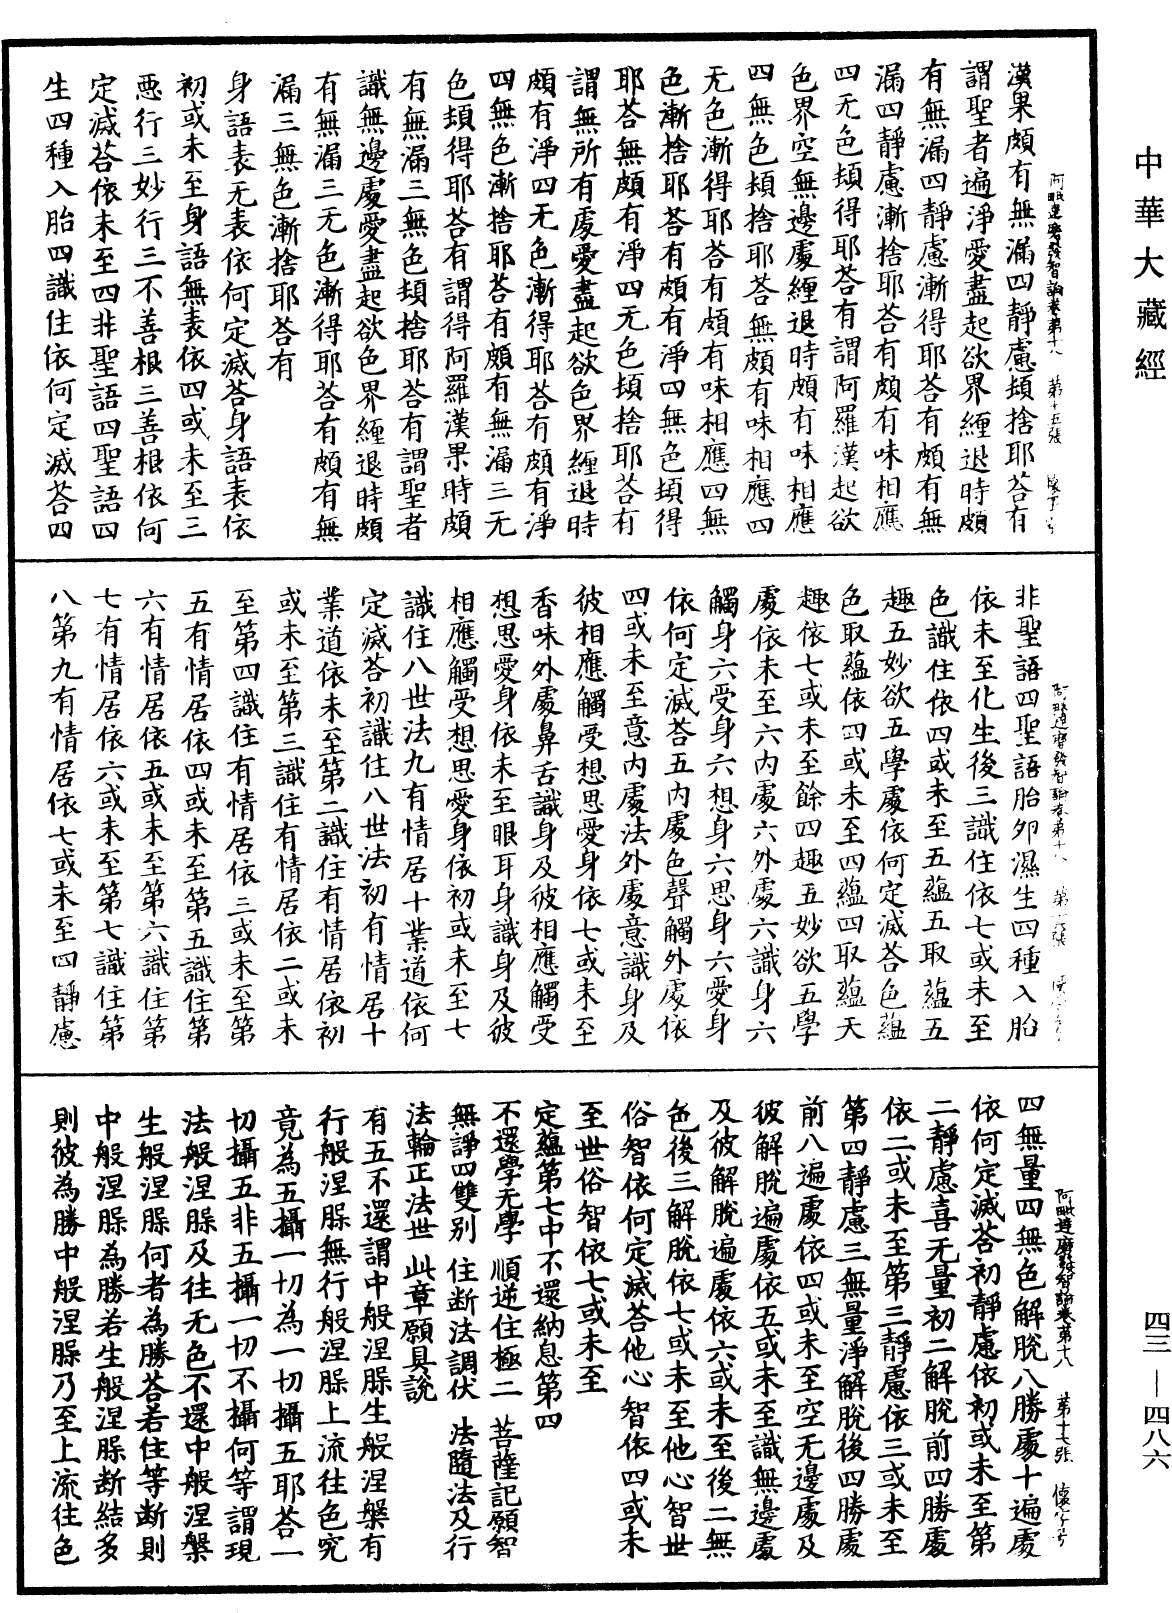 中華大藏經
阿毗達磨發智論卷第十八　第十五張　懷字号
漢果頗有無漏四靜慮頓捨耶荅有
謂聖者遍淨愛盡起欲界纏退時頗
有無漏四靜慮漸得耶荅有頗有無
漏四靜慮漸捨耶荅有頗有味相應
四无色頓得耶荅有謂阿羅漢起欲
色界空無邊處纏退時頗有味相應
四無色頓捨耶荅無頗有味相應四
无色漸得耶荅有頗有味相應四無
色漸捨耶荅有頗有淨四無色頓得
耶荅無頗有淨四无色頓捨耶荅有
謂無所有處愛盡起欲色界纏退時
頗有淨四无色漸得耶荅有頗有淨
四無色漸捨耶荅有頗有無漏三无
色頓得耶荅有謂得阿羅漢果時頗
有無漏三無色頓捨耶荅有謂聖者
識無邊處愛盡起欲色界纏退時頗
有無漏三无色漸得耶荅有頗有無
漏三無色漸捨耶荅有
身語表无表依何定滅荅身語表依
初或未至身語無表依四或未至三
惡行三妙行三不善根三善根依何
定滅荅依未至四非聖語四聖語四
生四種入胎四識住依何定滅荅四
阿毗達磨發智論卷第十八　第十六張　懷字号
非聖語四聖語胎夘濕生四種入胎
依未至化生後三識住依七或未至
色識住依四或未至五蘊五取蘊五
趣五妙欲五學處依何定滅荅色蘊
色取蘊依四或未至四蘊四取蘊天
趣依七或未至餘四趣五妙欲五學
處依未至六內處六外處六識身六
觸身六受身六想身六思身六愛身
依何定滅荅五內處色聲觸外處依
四或未至意內處法外處意識身及
彼相應觸受想思愛身依七或未至
香味外處鼻舌識身及彼相應觸受
想思愛身依未至眼耳身識身及彼
相應觸受想思愛身依初或未至七
識住八世法九有情居十業道依何
定滅荅初識住八世法初有情居十
業道依未至第二識住有情居依初
或未至第三識住有情居依二或未
至第四識住有情居依三或未至第
五有情居依四或未至第五識住第
六有情居依五或未至第六識住第
七有情居依六或未至第七識住第
八第九有情居依七或未至四靜慮
阿毗達磨發智論卷第十八　第十七張　懷字号
四無量四無色解脫八勝處十遍處
依何定滅荅初靜慮依初或未至第
二靜慮喜无量初二解脫前四勝處
依二或未至第三靜慮依三或未至
第四靜慮三無量淨解脫後四勝處
前八遍處依四或未至空无邊處及
彼解脫遍處依五或未至識無邊處
及彼解脫遍處依六或未至後二無
色後三解脫依七或未至他心智世
俗智依何定滅荅他心智依四或未
至世俗智依七或未至
定蘊第七中不還納息第四
不還學无學　順逆住極二　菩薩記願智
無諍四雙别　住断法調伏　法隨法及行
法輪正法世　此章願具說
有五不還謂中般涅槃生般涅槃有
行般涅槃無行般涅槃上流往色究
竟為五攝一切為一切攝五耶荅一
切攝五非五攝一切不攝何等謂現
法般涅槃及往无色不還中般涅槃
生般涅槃何者為勝荅若住等断則
中般涅槃為勝若生般涅槃断結多
則彼為勝中般涅槃乃至上流往色
四三—四八六